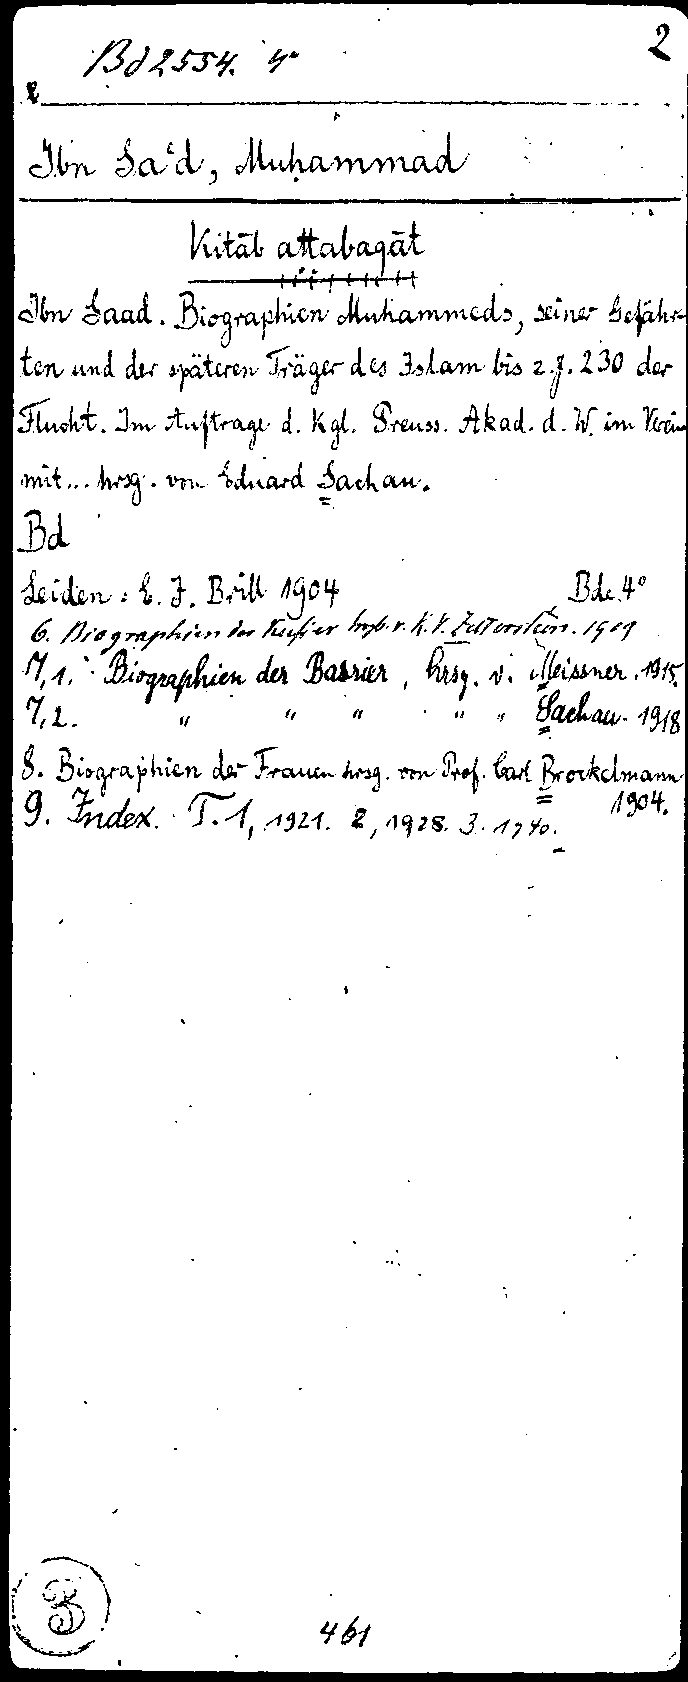 2
Bd 2554. 4°
Ibn Saʿd, Muḥammad
Kitāb attabaqāt
Ibn Saad. Biographien Muhammeds, seiner Gefähr-
ten und der späteren Träger des Islam bis z. J. 230 der
Flucht. Im Auftrage d. Kgl. Preuss. Akad. d. W. im Verein
mit... hrsg. von Eduard Sachau.
Bd
Leiden: E. J. Brill 1904 Bde. 4°
6. Biographien der Kufier hrsg. v. K. V. Zetterstéen. 1909
7,1. Biographien der Basrier, hrsg. v. Meissner. 1915.
7,2. " " " " " Sachau. 1918
8. Biographien der Frauen hrsg. von Prof. Carl Brockelmann
1904.
9. Index. T. 1, 1921. 2, 1928. 3. 1940.
3
461